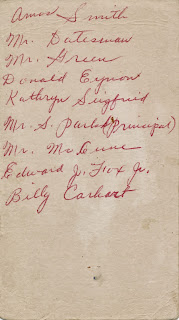 Amos Smith
Mr. Batesman
Mr. Green
Donald Eynon
Kathryn Seigfried
Mr. S. Parks (Principal)
Mr. Mc Cune
Edward J. Fox Jr.
Billy Carhart